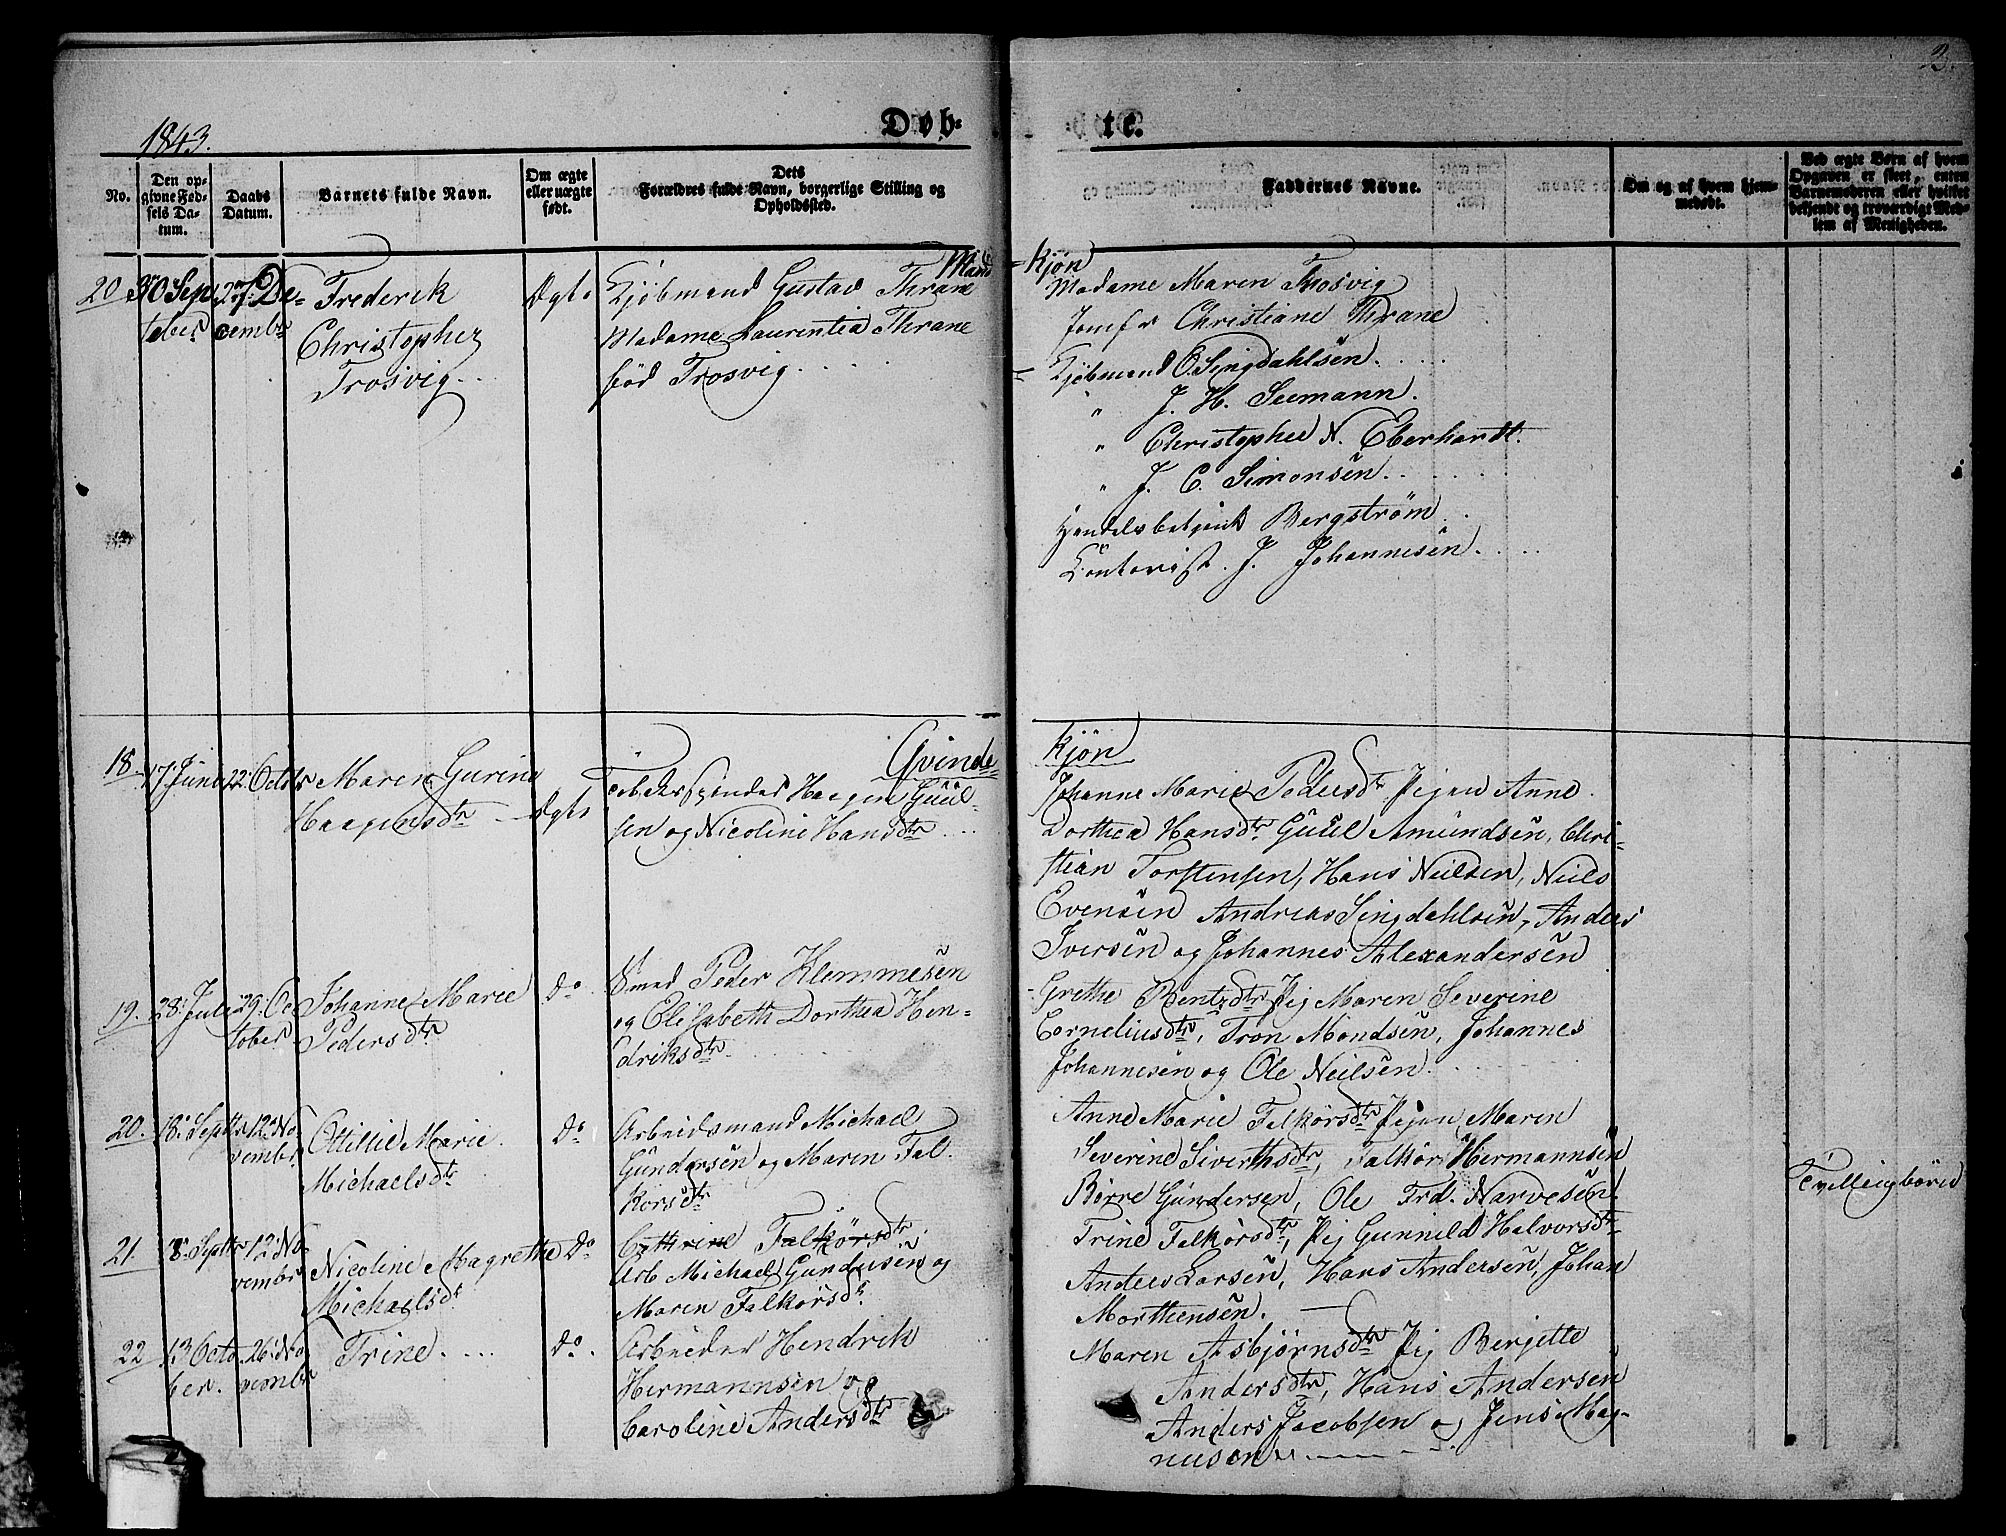 2.
1843.
Døb-
te.
No.
Den op-
givne Fød-
sels Da-
tum.
Daabs
Datum.
Barnets fulde Navn.
Om ægte
eller uægte
født.
Dets
Forældres fulde Navn, borgerlige Stilling og
Opholdssted.
Faddernes Navne.
Om og af hvem hjem-
medøbt.
Ved ægte Børn af hvem
Opgaven er skeet, enten
Barnemoderen eller hvilket
bekjendt og troværdigt Med-
lem af Menigheden.
Mand
-kjøn
20 30 Sep 27: De-
tober cembr
Frederik
Christopher
Trosvig
Ægte
Kjøbmand Gustav Thrane
Madame Laurentia Thrane
fød Trosvig
Madame Maren Trosvig
Jomfr Christiane Thrane
Kjøbmand O. Singdahlsen
" J. H. Seemann.
" Christopher N. Eberhardt.
" J. C. Simonsen
Handelsbetjent Bergström
Contorist. J. Johannesen
Qvinde
kjøn
18 17 Juni 22: Octbr Maren Gurine
Haagensdtr
Ægte
Haagen Guul-
sen og Nicoline Hansdtr
Johanne Marie Pedersdtr Pigen Anne
Dorthea Hansdtr Guul Amundsen, Chri-
stian Torstensen, Hans Neilsen, Neils
Evensen Andreas Singdahlsen, Anders
Iversen og Johannes Alexandersen
19. 28: Juli 29: Oc-
tober
Johanne Marie
Pedersdtr
Do
Smed Peder Klemmesen
og Elisabeth Dorthea Hen-
driksdtr
Grethe Bentzdtr Pig Maren Severine
Corneliusdtr, Tron Mondsen, Johannes
Johannesen og Ole Neilsen.
20. 18: Septbr 12: No-
vembr
Ottillie Marie
Michaelsdtr
Do
Arbeidsmand Michael
Gundersen og Maren Fal-
korsdtr
Anne Marie Falkorsdtr Pigen Maren
Severine Siverthsdtr, Falkor Hermannsen
Børre Gundersen, Ole Frd. Narvesen
Tvillingbørn
21. 18: Septbr 12: No-
vembr
Nicoline Magrethe
Michaelsdtr
Do
Cathrine Falkørsdtr
Arb Michael Gundersen og
Maren Falkorsdtr
Trine Falkorsdtr, Pig Gunnild Halvorsdtr
Anders Larsen, Hans Andersen, Johan
Morthensen.
22 13 Octo-
ber. 26: No-
vembr
Trine
Do.
Arbeider Hendrik
Hermannsen og
Caroline Andersdtr
Maren Asbjørnsdtr Pig Berjette
Andersdtr, Hans Andersen
Anders Jacobsen og Jens Mag-
nusen